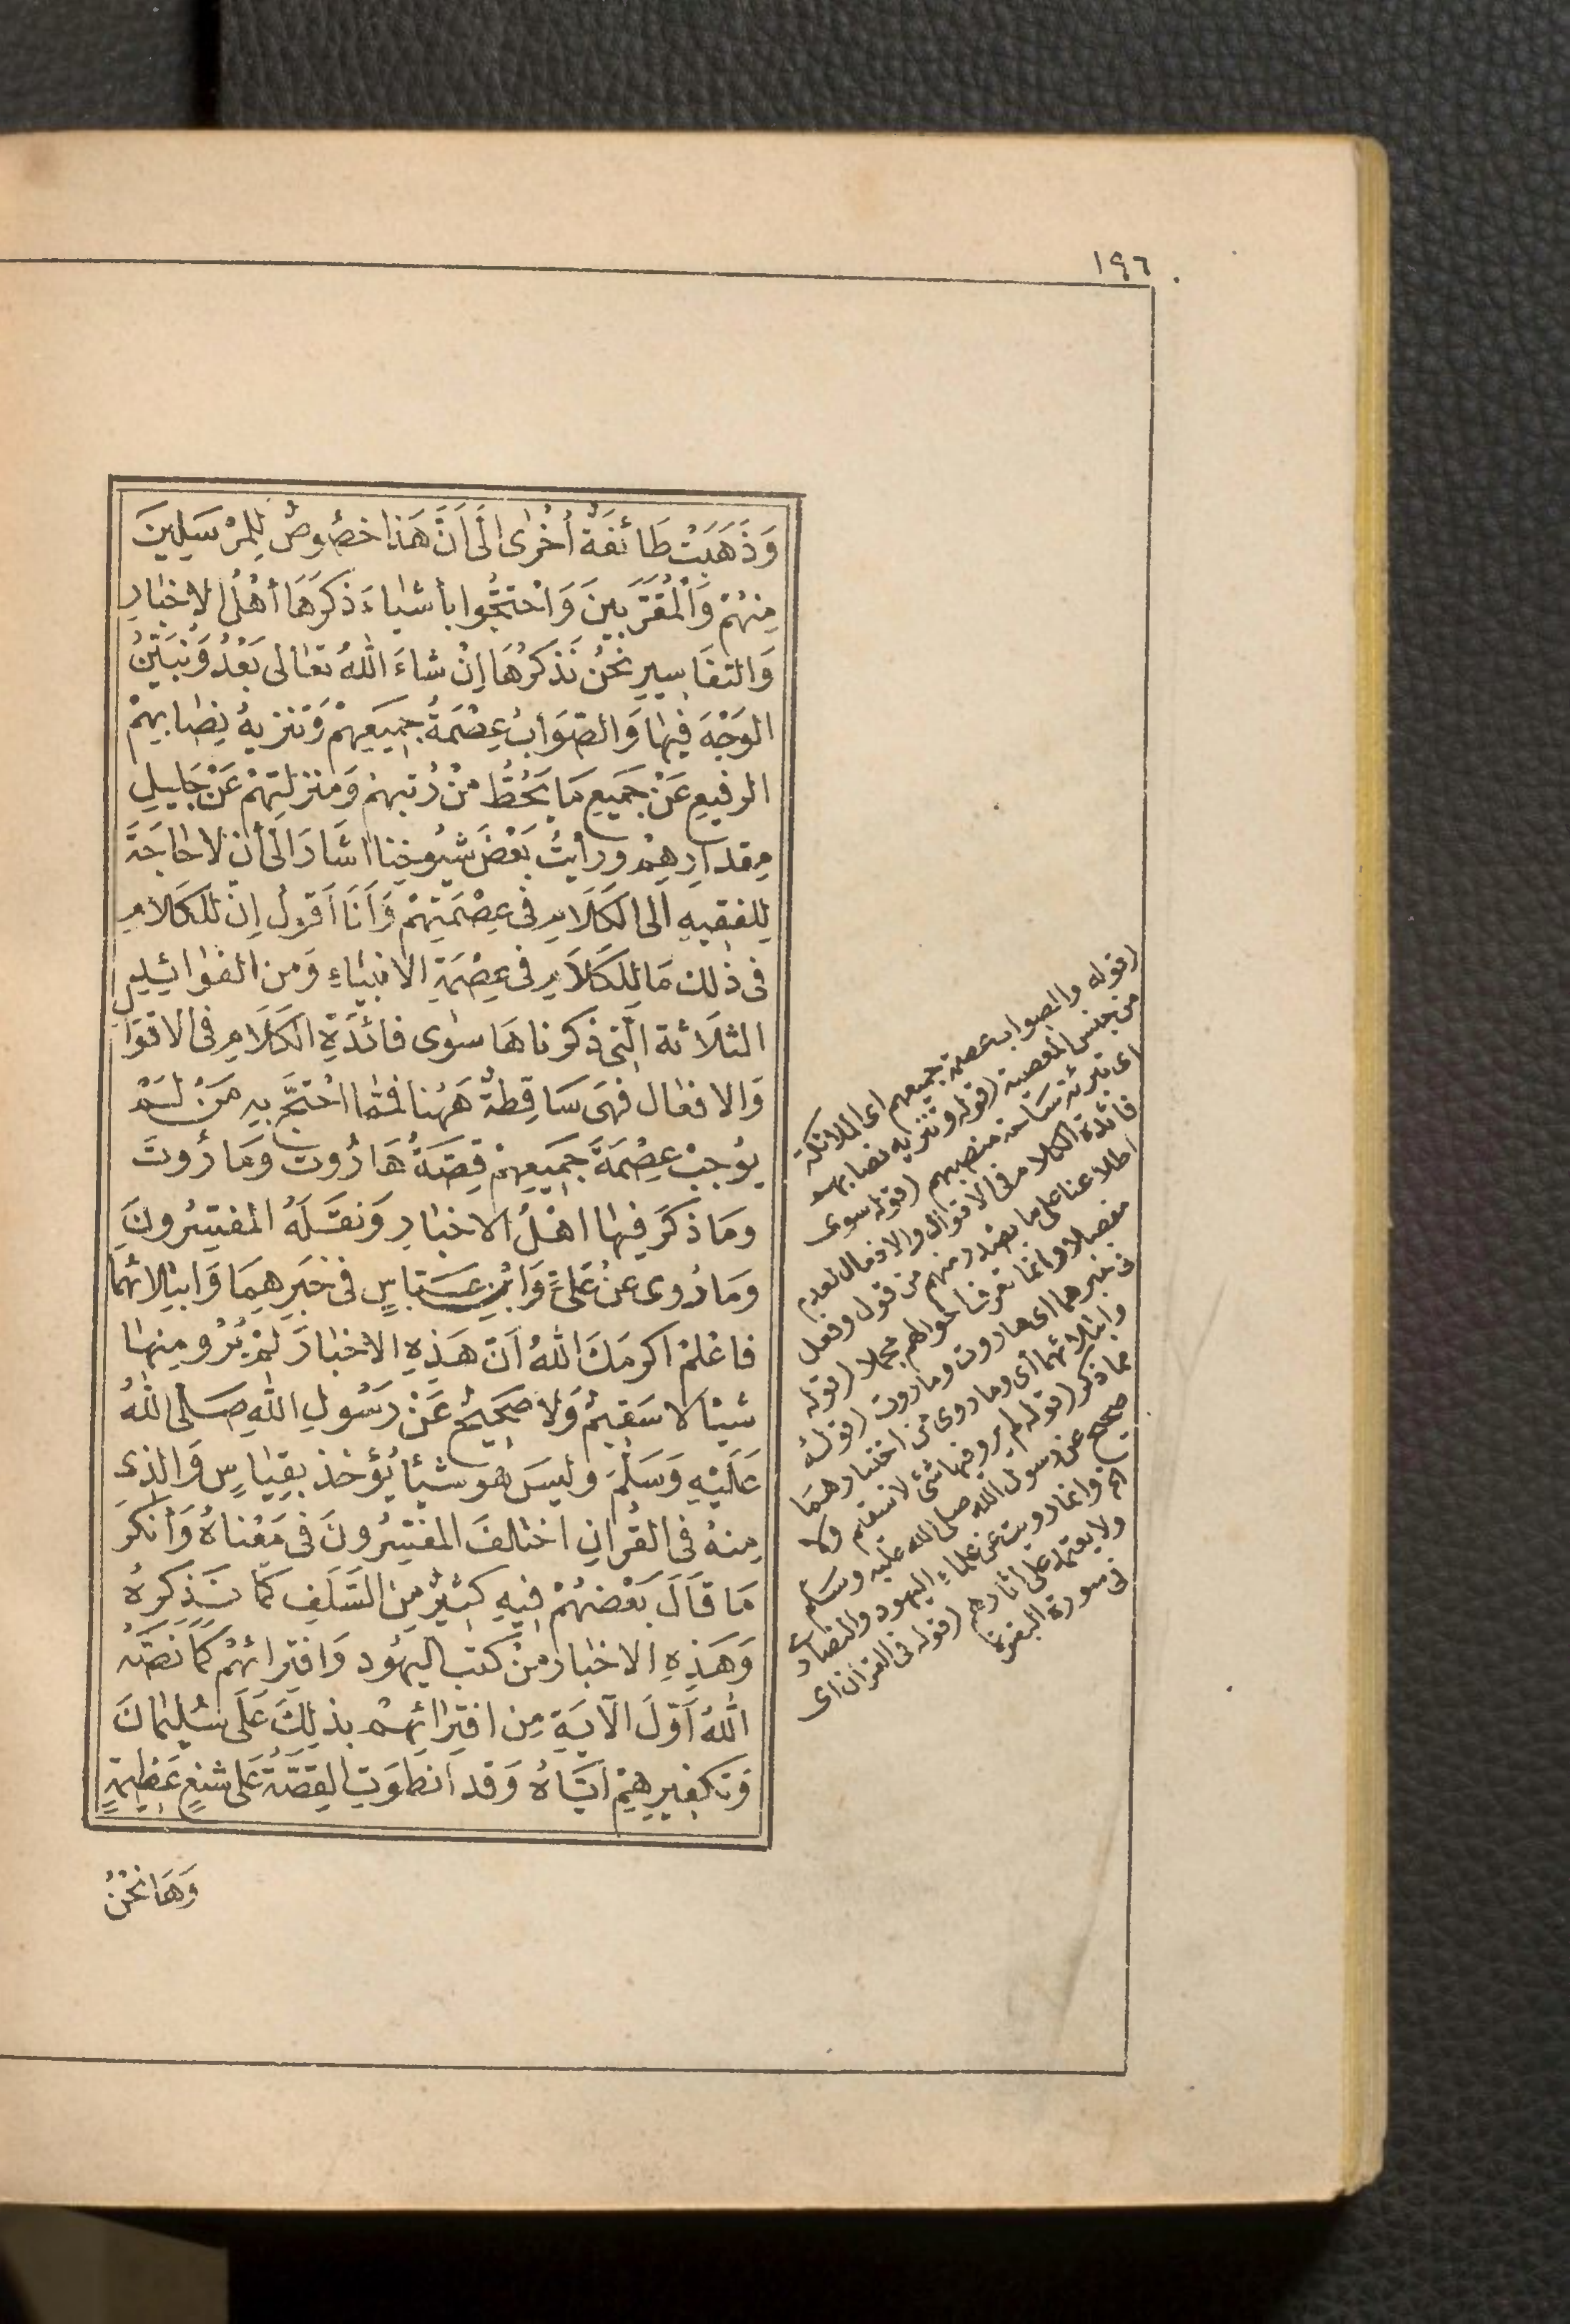 ١٩٦
وَذَهَبَتْ طَائِفَةٌ أُخْرٰى الَى اَنَّ هَذَا خصُوصٌ لِلمُرْسَلِينَ
مِنهُمْ وَالْمُقَرَّبِينَ وَاحْتجُّوا بأشيٰاءَ ذكرَهَا أهْلُ الاخبٰارِ
وَالتفَاسِيرِ نحْنُ نَذكُرُهَا اِنْ شاءَ اللّٰهُ تعٰالى بَعْدُ وَنُبَيّنُ
الوَجْهَ فِيهٰا وَالصّوَابُ عِصْمَةُ جمِيَعِهِمْ وَتَنزيهُ نِصٰابِهِمْ
الرفيعِ عَنْ جَمِيعِ مَا يَحُطُّ مِنْ رُتبهِمْ وَمنزلتِهِمْ عَنْ جَلِيلِ
مِقدارِهِمْ ورأيتُ بَعْضَ شيُوخِنا اشَارَ الَى أن لا حٰاجَةَ
لِلفقِيهِ الَى الكَلَامِ فى عِصْمَتِهِمْ وَأنَا اَقولُ اِنّ للكَلامِ
فى ذٰلك مَا لِلكَلَامِ فى عِصْمَةِ الانبيٰاءِ وَمن الفوٰائِدِ
الثلَاثة الّتى ذكرناهَا سوٰى فائدَةِ الكَلَامِ فى الاقوَالِ
وَالافعٰال فهىَ سَاقِطةٌ هَهُنا فممّا احْتجَّ بهِ مَنْ لمْ
يوُجبْ عِصْمَةَ جَمِيعِهِمْ قِصّةُ هَارُوتَ وَمَارُوتَ
وَمَا ذكَرَ فِيهٰا اهْلُ الاخبٰارِ وَنقَلَهُ المفسِّرُونَ
وَمَا رُوى عَنْ عَلىٍّ وَابْنِ عبّاسٍ فى خبَرِهِمَا وَابتِلَائهمَا
فاعْلمْ اكرمَكَ اللّٰهُ اَنّ هَذِهِ الاخبٰارَ لمْ يُرْوَ مِنهٰا
شيئا لا سَقيمٌ وَلَا صَحِيحٌ عَنْ رَسُولِ اللّٰهِ صَلى اللّٰهُ
عَلَيْهِ وَسَلَّمَ وليسَ هُو شيئًا يُؤخذ بِقِيٰاسٍ وَالذِى
مِنهُ فى القُرآنِ اختلفَ المفسِّرُونَ فى مَعْناهُ وَأنكَرَ
مَا قَالَ بَعْضهُمْ فِيهِ كثِيرٌ مِنَ السَّلَفِ كَمَا سَنَذكُرُهُ
وَهَذِهِ الاخبٰار مِنْ كتب اليَهُود وَافتِرائهمْ كمَا نَصّهُ
اللّٰهُ اَوّلَ الآيَةِ مِن افتِرٰائِهمْ بذلِكَ عَلَى سُليْمٰانَ
وَتكفِيرِهِمْ ايّاهُ وَقد انطوَتِ القِصَّةُ عَلى شنعٍ عَظِيمَةٍ
وَهَا نحْنُ
(قوله والصواب عصمة جميعهم اى الملائكة
من جنس المعصية (قوله وتنزيه نصابهم
اى تبرئة ساحة منصبهم (قوله سوى
فائدة الكلام فى الاقوال والافعال لعدم
اطلاعنا على ما يصدر منهم من قول وفعل
مفصلا وانما تعرفنا احوالهم مجملا (قوله
فى خبرهما اى هاروت وماروت (قوله
وابتلائهما أى وما روى من اختبارهما
مما ذكر (قوله لم يرو منها شئ لا سقيم ولا
صحيح عن رسول الله صلى الله عليه وسلم
اه وانما رويت عن علماء اليهود والنصارى
ولا يعتمد على اثارهم (قوله فى القرآن اى
فى سورة البقرة